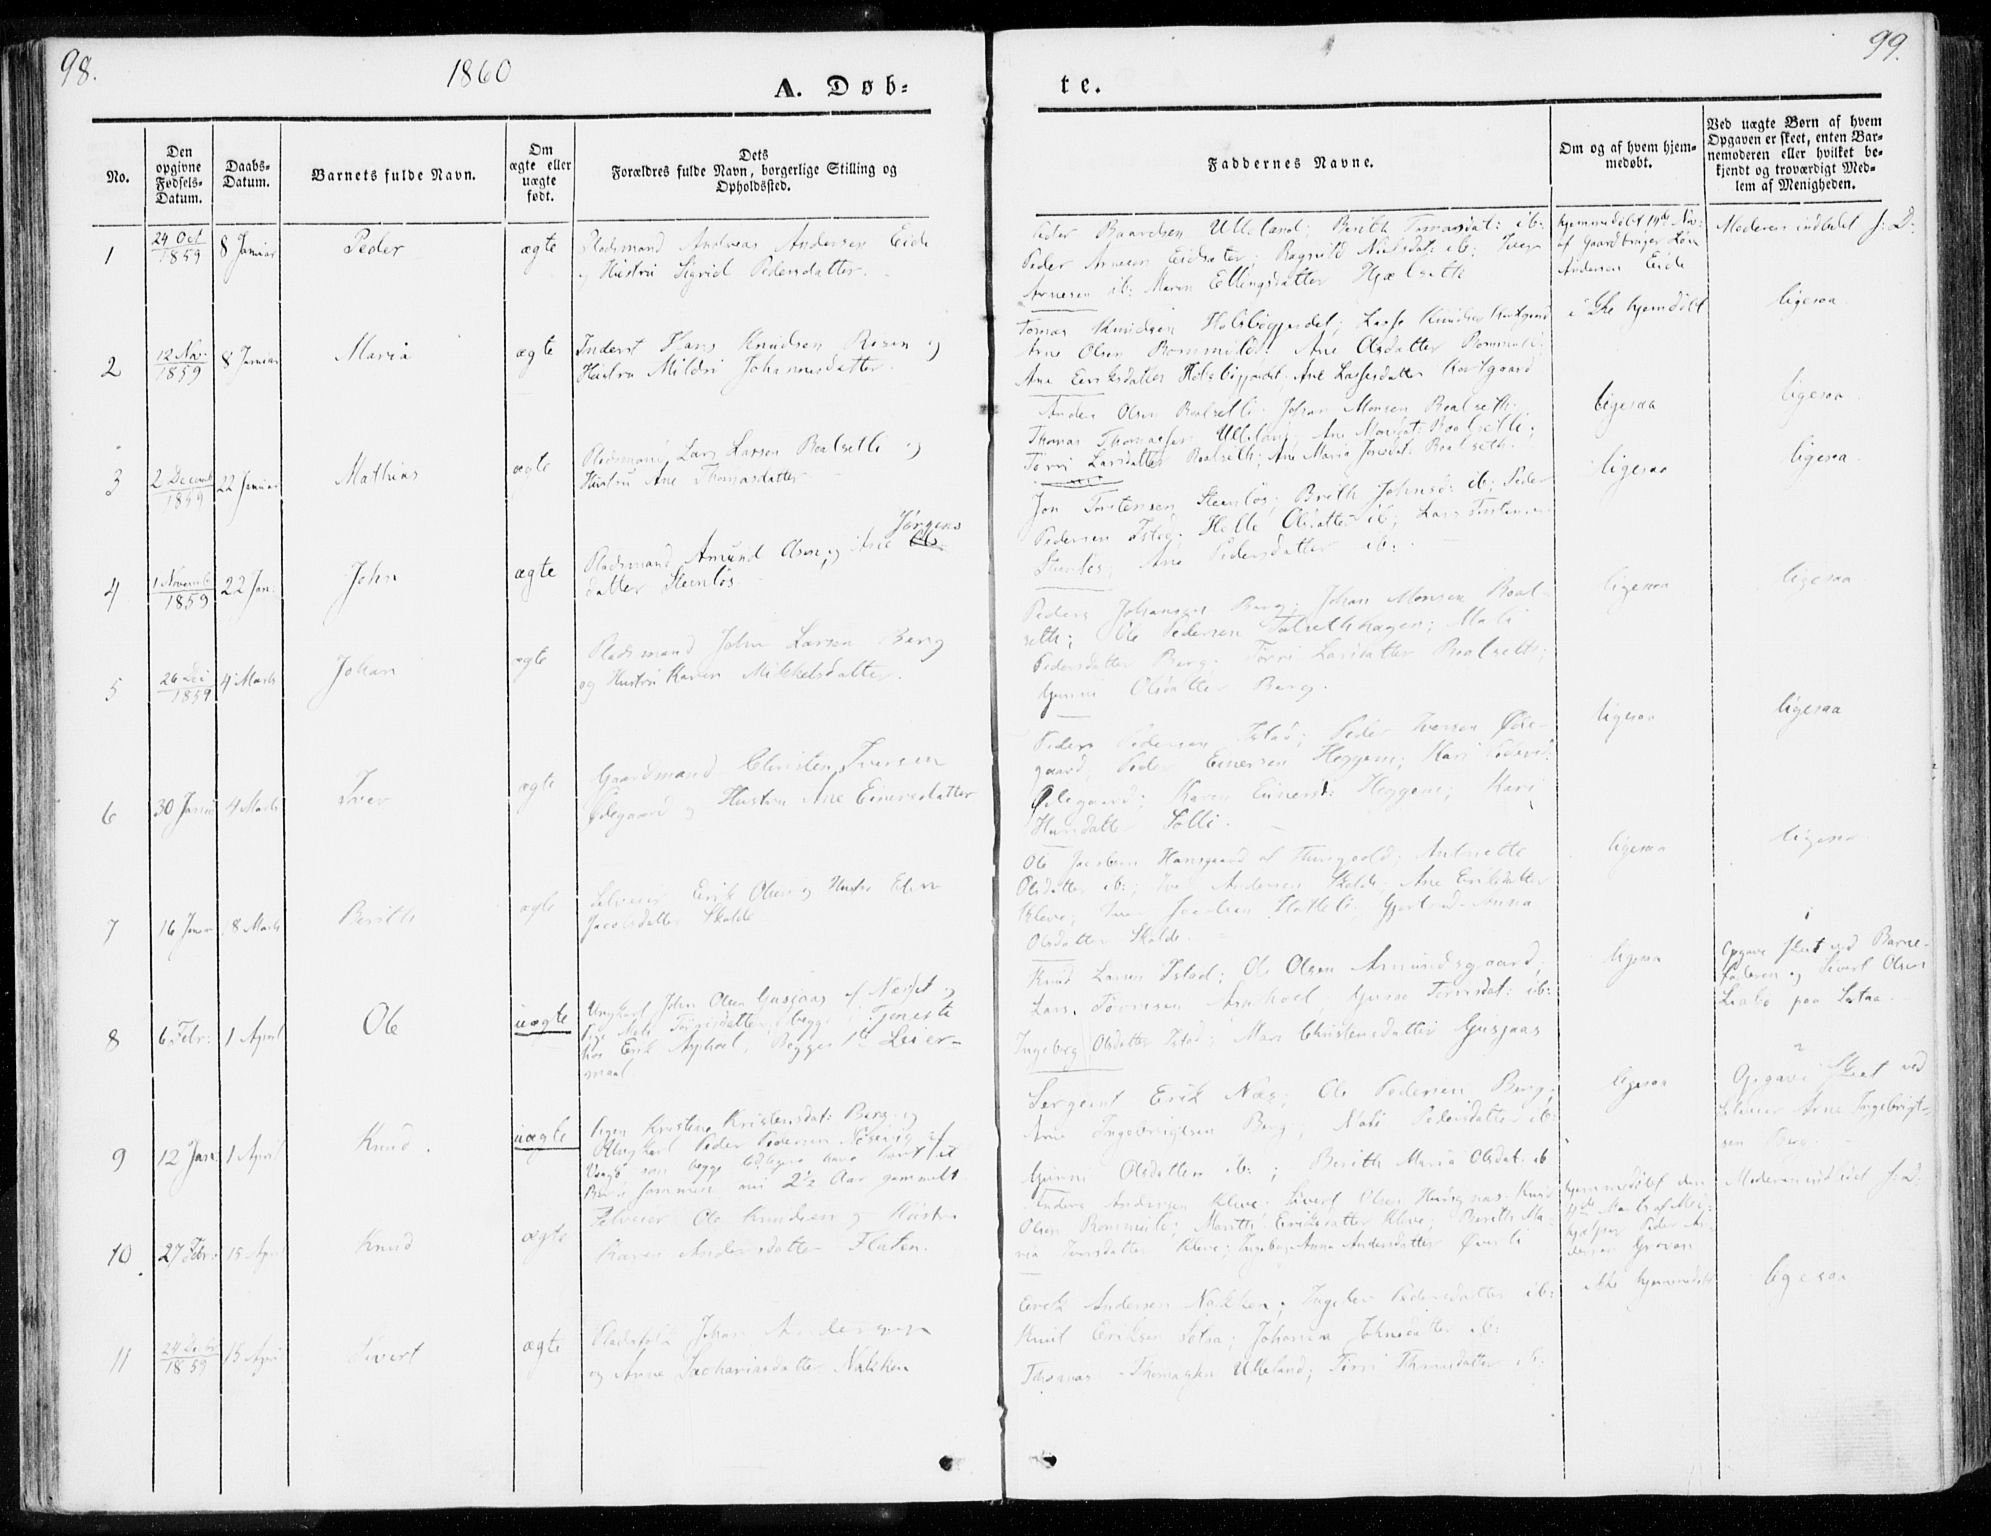 98.
1860
A. Døb-
te.
99.
No.
Den opgivne Fødsels-Datum.
Daabs-Datum.
Barnets fulde Navn.
Om ægte eller uægte født.
Dets
Forældres fulde Navn, borgerlige Stilling og
Opholdssted.
Faddernes Navne.
Om og af hvem hjem-
medøbt.
Ved uægte Børn af hvem
Opgaven er skeet, enten Bar-
nemoderen eller hvilket be-
kjendt og troværdigt Med-
lem af Menigheden.
1
24 Oct
1859
8 Januar
Peder
ægte
Pladsmand Andreas Andersen Eide
og Hustru Sigrid Pedersdatter.
Peder Baardsen Ulleland; Berith Tomasdat: ib:
Peder Arnesen Eidsæter; Ragnild Nielsdat: ib: Iver
Arnesen ib: Maren Ellingsdatter Hjælseth
hjemmedøbt 14de Nov:
af Gaardbruger
Andersen Eide
Moderen indledet f: D:
2
12 Nov.
1859
8 Januar
Maria
ægte
Inderst Hans Knudsen Rosen og
Hustru Mildri Johannesdatter.
Tomas Knudsen
Arne Olsen Ane Olsdatter
Ane Eriksdatter Ane Lassesdatter Kortgaard
ikke hjemdøbt
ligesaa
3
2 Decemb
1859
22 Januar
Mathias
ægte
Pladsmand Lars Larsen Roalseth og
Hustru Ane Thomasdatter
Anders Olsen Roalseth; Johan Monsen Roalseth;
Thomas Thomassen Ulleland, Ane Monsdat. Roalseth;
Torri Larsdatter Roalseth; Ane Maria Jonsdat. Roalseth.
ligesaa
ligesaa
4
1 Novemb
1859
22 Jan:
John
ægte
Jørgens
Pladsmand Amund Olsen og Ane Ols-
datter Steenløs
Jon Torstensen Steenløs; Brith Johnsd: ib; Peder
Pedersen Istad; Helle Olsdatter ib; Lars Torstensen
Steenløs; Ane Pedersdatter ib:
ligesaa
ligesaa
5
26 Dec
1859
4 Marts
Johan
ægte
Pladsmand John Larsen Berg
og Hustru Karen Mikkelsdatter.
Peder Johansen Berg; Johan Monsen Roal-
seth; Ole Pedersen Talsethhagen; Mali
Pedersdatter Berg; Torri Larsdatter Roalseth;
Gunni Olsdatter Berg.
ligesaa
ligesaa
6
30 Janu
4 Marts
Iver
ægte
Gaardmand Christen Iversen
Ødegaard og Hustru Ane Einersdatter
Peder Pedersen Istad; Peder Iversen Øde-
gaard, Peder Einersen Heggem; Kari
Ødegaard; Karen Einersd: Heggem; Kari
Hansdatter Solli.
ligesaa
ligesaa
7
16 Janu
18 Marts
Berith
ægte
Selveier Erik Olsen og Hustru Elen
Jacobsdatter Skalde
Ole Jacobsen Hansgaard af Antnette
Olsdatter ib:; Iver Andersen Skalde, Ane Eriksdatter
Kleve; Iver Jacobsen Gjertrud Anna
Olsdatter Skalde.
ligesaa
ligesaa
8
6 Febr:
1 April
Ole
uægte
Ungkarl John Olsen Gusjaas af Nesset og
Pige Mali Torrisdatter, begge i Tjeneste
hos Erik Asphoel, Begges 1te Leier-
maal
Knud Larsen Istad; Ole Olsen Amundsgaard,
Lars Torresen Asphoel; Gunne Torrisdat: ib:
Ingeborg Olsdatter Istad; Mari Christensdatter Gusjaas
ligesaa
Opgave skeet ved Barne-
faderen og Sivert Olsen
9
12 Jan
1 April
Knud.
uægte
Pigen Kristine Kristensdat: Berg og
Ungkarl Peder Pedersen
som begge
Barn sammen nu 2½ Aar gammelt.
Sergeant Erik Næs; Ole Pedersen Berg;
Arne Ingebrigtsen Berg; Pedersdatter ib:
Gunni Olsdatter ib:; Berith Maria Olsdat: ib
ligesaa
Opgave skeet ved
Arne Ingebrigt-
sen Berg.
10
27 Febr:
15 April
Knud
ægte
Selveier Ole Knudsen og Hustru
Karen Andersdatter Flaten.
Anders Andersen Kleve; Sivert Olsen Knud
Olsen Marith Eriksdatter Kleve; Berith Ma-
ria Iversdatter Kleve; Ingeborg Anna Andersdatter Øverli
hjemmedøbt den
Marts af Med-
hjælper Peder An-
dersen
Moderen indledet f: D:
11
24 Decbr
1859
15 April
Sivert
ægte
Pladsfolk Johan Andersen
og Anne Zachariasdatter Nakken
Erik Andersen Nakken; Ingeber Pedersdatter ib:
Knut Eriksen Sotra; Johanna Johnsdatter ib:
Thomas Thomassen Ulleland; Torri Thomasdatter ib.
ikke hjemmedøbt
ligesaa